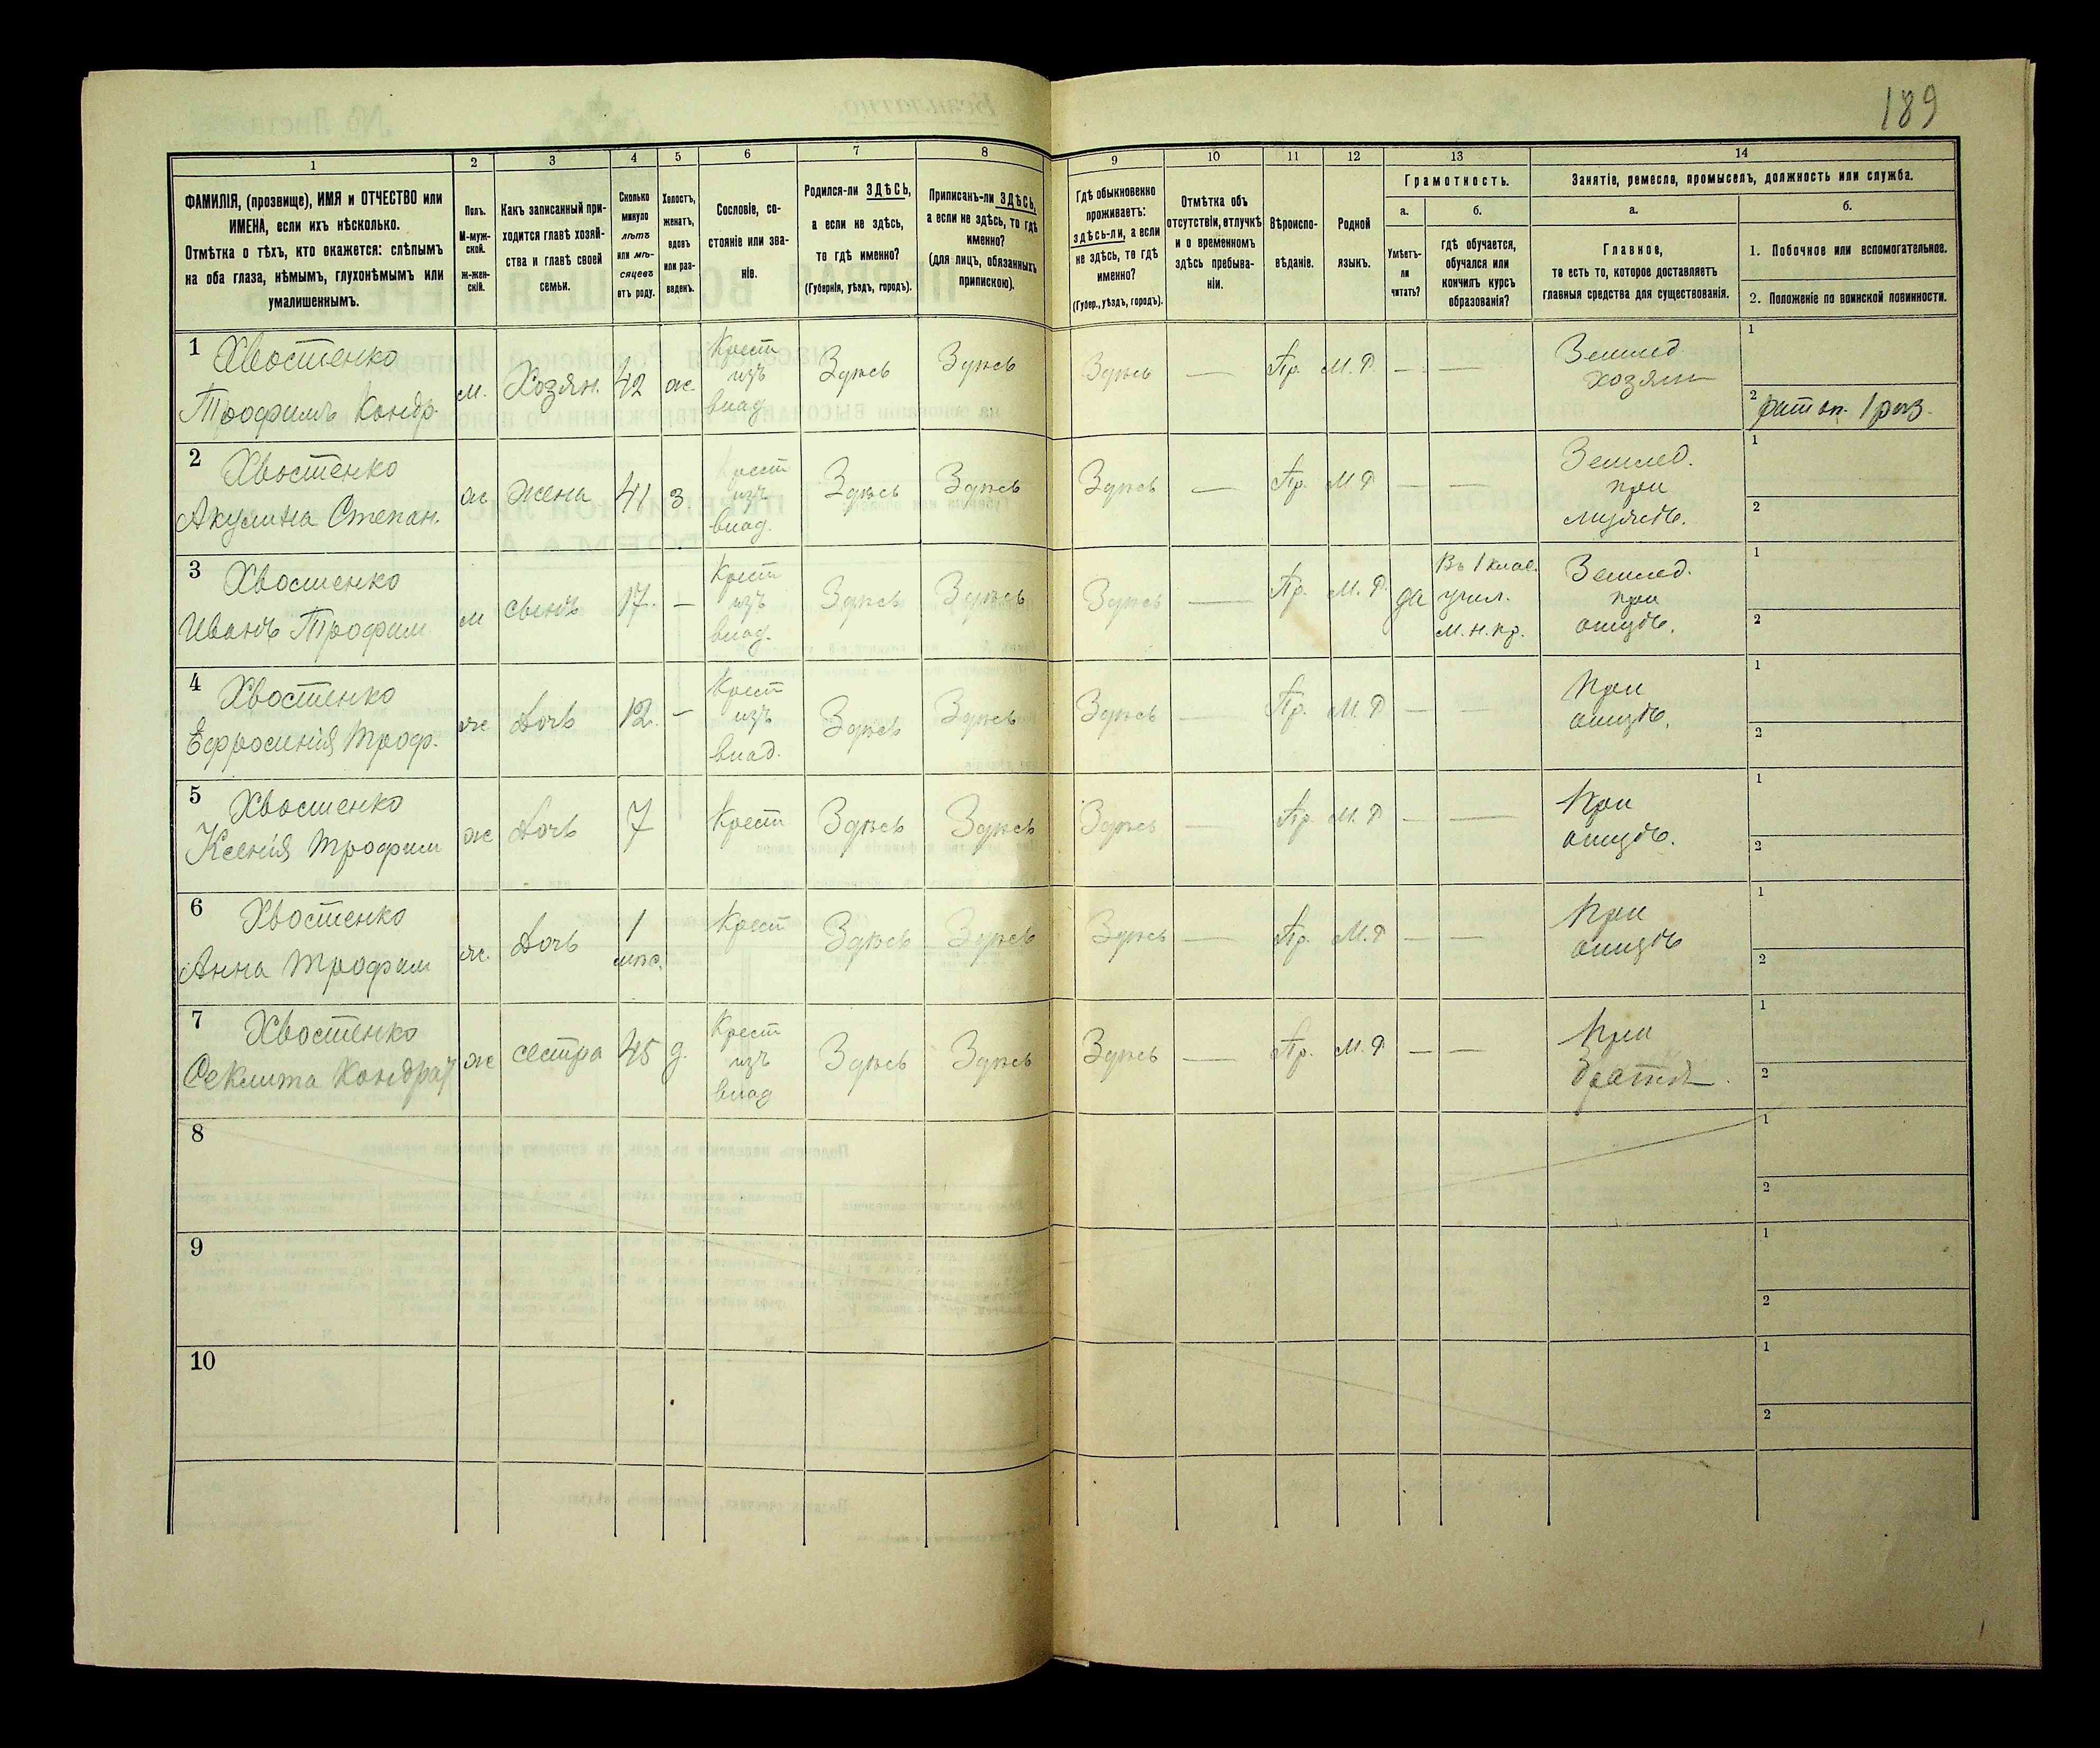 189
1 2 3 4 5 6 7 8 9 10 11 12 13 14
ФАМИЛІЯ, (прозвище), ИМЯ и ОТЧЕСТВО или
ИМЕНА, если ихъ нѣсколько.
Отмѣтка о тѣхъ, кто окажется: слѣпымъ
на оба глаза, нѣмымъ, глухонѣмымъ или
умалишеннымъ.
Полъ.
М-муж-
ской.
ж-жен-
скій.
Какъ записанный при-
ходится главѣ хозяй-
ства и главѣ своей
семьи.
Сколько
минуло
лѣтъ
или мѣ-
сяцевъ
отъ роду.
Холостъ,
женатъ,
вдовъ
или раз-
веденъ.
Сословіе, со-
стояніе или зва-
ніе.
Родился-ли ЗДѢСЬ,
а если не здѣсь,
то гдѣ именно?
(Губернія, уѣздъ, городъ).
Приписанъ-ли ЗДѢСЬ,
а если не здѣсь, то гдѣ
именно?
(для лицъ, обязанныхъ
припискою).
Гдѣ обыкновенно
проживаетъ:
здѣсь-ли, а если
не здѣсь, то гдѣ
именно?
(Губер., уѣздъ, городъ).
Отмѣтка объ
отсутствіи, отлучкѣ
и о временномъ
здѣсь пребыва-
ніи.
Вѣроиспо-
вѣданіе.
Родной
языкъ.
Грамотность.
а.
Умѣетъ-
ли
читать?
б.
гдѣ обучается,
обучался или
кончилъ курсъ
образованія?
Занятіе, ремесло, промыселъ, должность или служба.
а.
Главное,
то есть то, которое доставляетъ
главныя средства для существованія.
б.
1. Побочное или вспомогательное.
2. Положеніе по воинской повинности.
1 Хвостенко
Трофимъ Кондр.
м. Хозян. 42 ж. Крест
изъ
влад Здѣсь Здѣсь Здѣсь — Пр. М. Р. — — Землед
хозяин
1
2 рат оп. 1 раз.
2 Хвостенко
Акулина Степан.
ж жена 41 з Крест
изъ
влад. Здѣсь Здѣсь Здѣсь — Пр. М Р — — Землед.
при
мужѣ.
1
2
3 Хвостенко
Иванъ Трофим
м сынъ 17. — Крест
изъ
влад. Здѣсь Здѣсь Здѣсь — Пр. М. Р. да Въ 1 клас.
учил.
м. н. пр. Землед.
при
отцѣ.
1
2
4 Хвостенко
Ефросинія Троф.
ж дочь 12. — Крест
изъ
влад. Здѣсь Здѣсь Здѣсь — Пр. М. Р — — При
отцѣ.
1
2
5 Хвостенко
Ксенія Трофим
ж дочь 7 Крест Здѣсь Здѣсь Здѣсь — Пр М. Р — — При
отцѣ.
1
2
6 Хвостенко
Анна Трофим
ж. дочь 1
мѣс. Крест Здѣсь Здѣсь Здѣсь — Пр. М. Р — — При
отцѣ
1
2
7 Хвостенко
Феклита Кондрат
ж сестра 45 д. Крест
изъ
влад Здѣсь Здѣсь Здѣсь — Пр. М. Р — — При
братѣ.
1
2
8
1
2
9
1
2
10
1
2